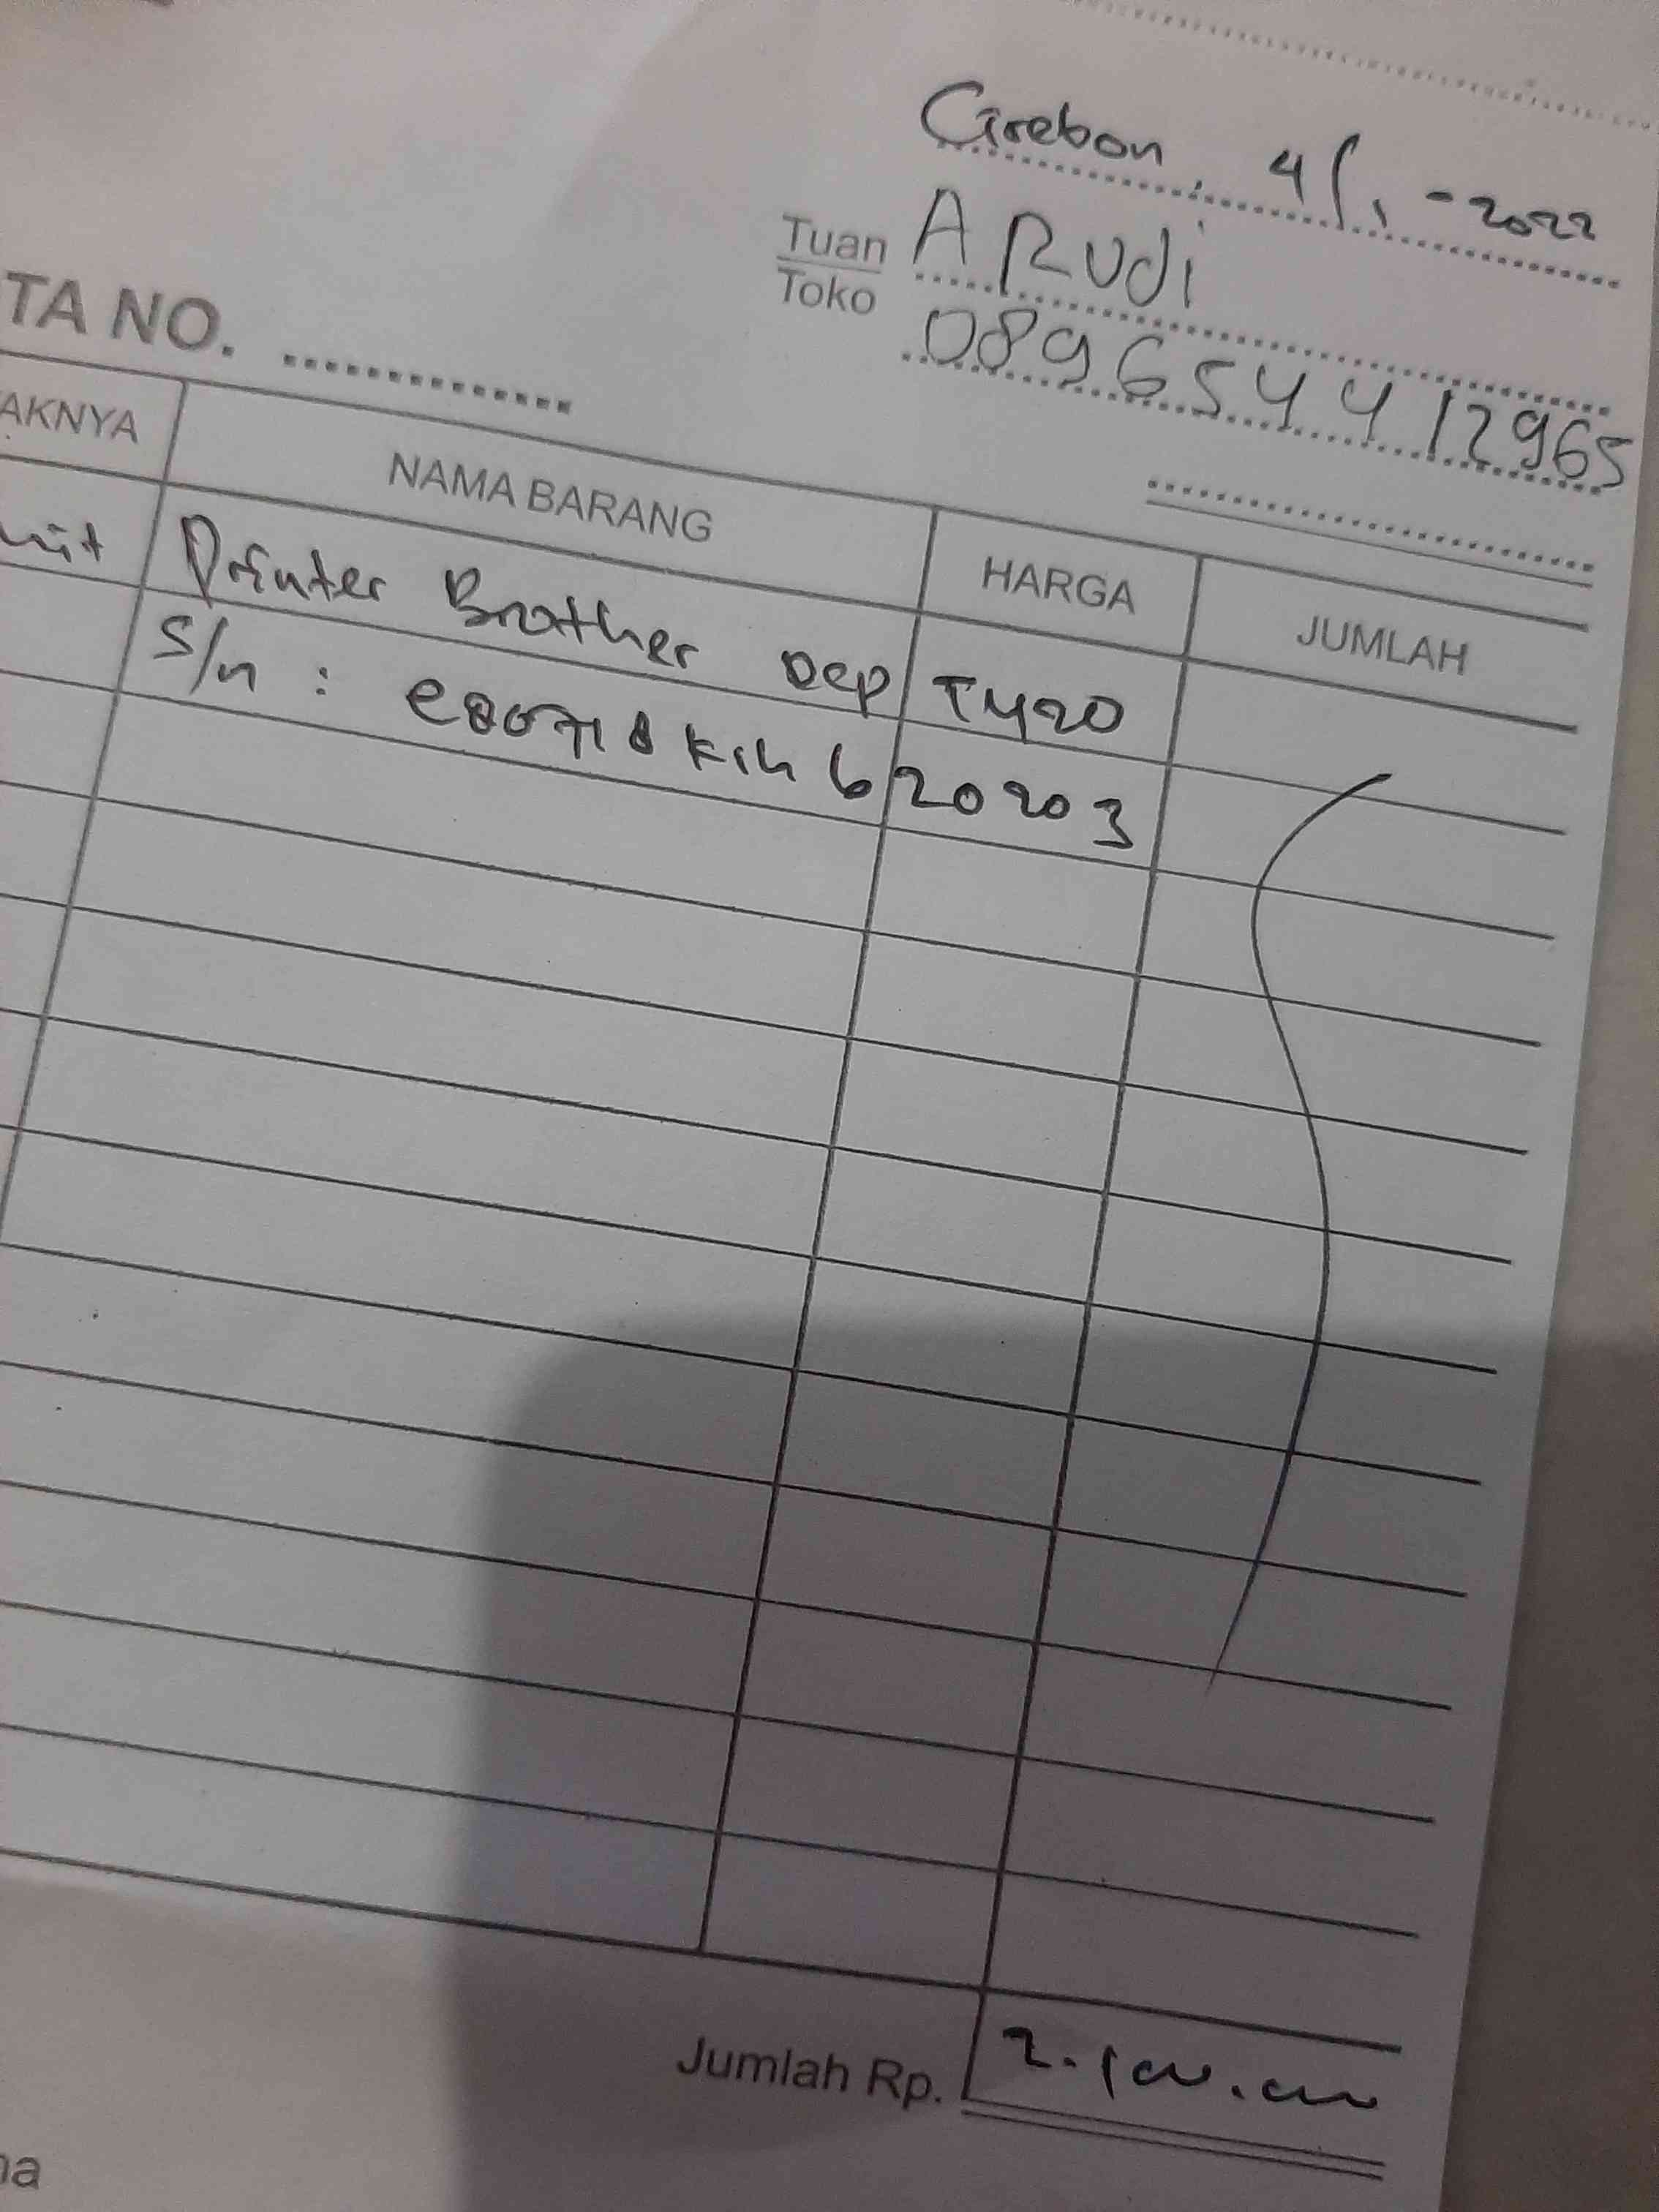 Cirebon, 4/1-2022
Tuan A Rudi
Toko 089654412965
TA NO. ..............
AKNYA NAMA BARANG HARGA JUMLAH
nit Printer Brother Dcp T420
S/n :
Jumlah Rp. 2.100.000